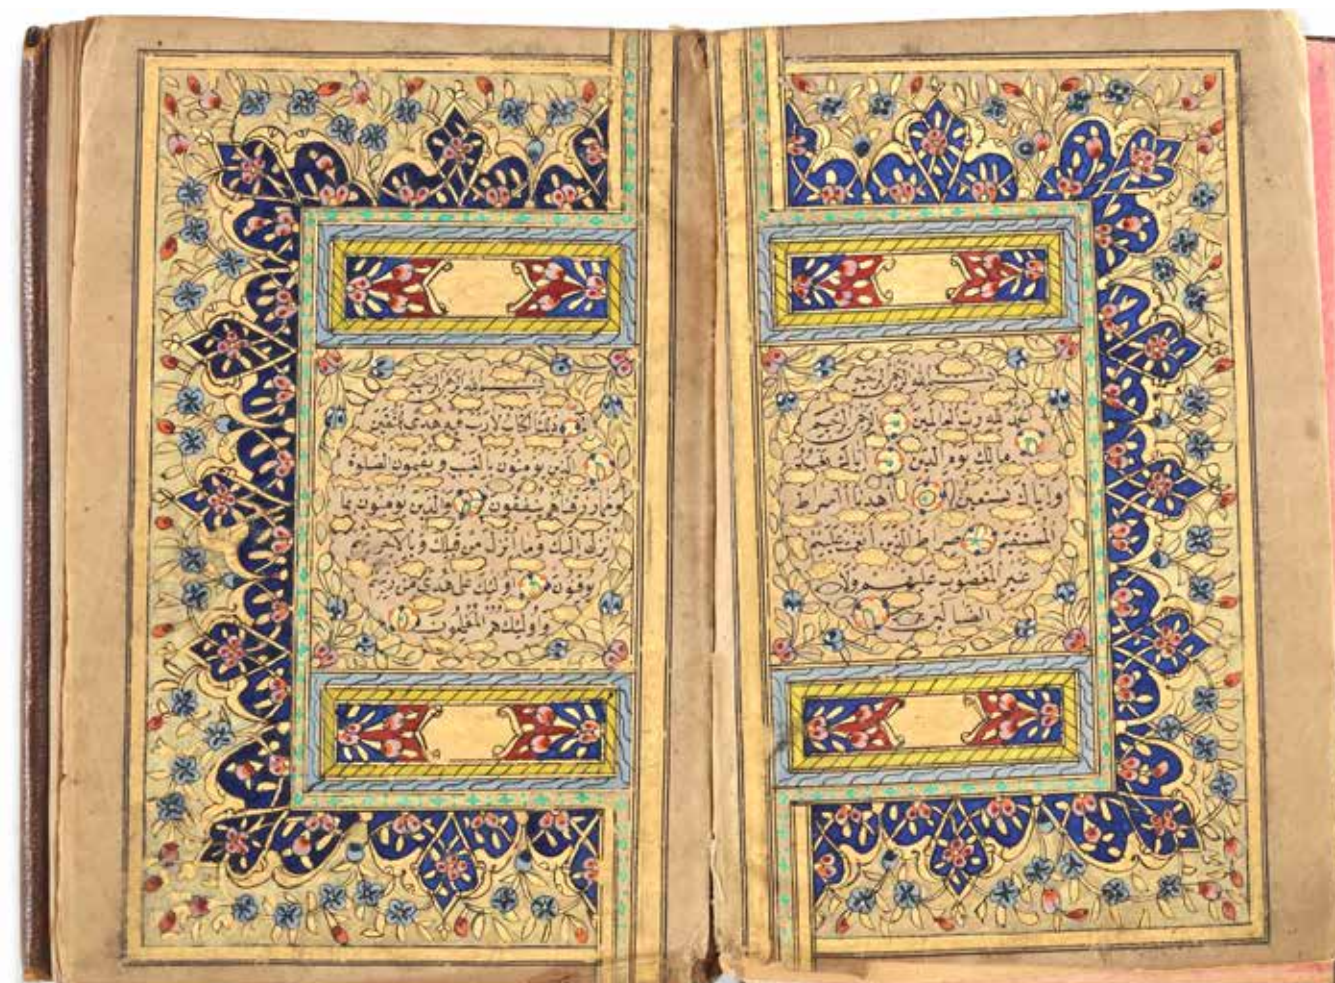 بسم الله الرحمن الرحيم
الحمد لله رب العالمين الرحمن الرحيم
مالك يوم الدين اياك نعبد
واياك نستعين اهدنا الصراط
المستقيم صراط الذين انعمت عليهم
غير المغضوب عليهم ولا
الضالين
بسم الله الرحمن الرحيم
الم ذلك الكتاب لا ريب فيه هدى للمتقين
الذين يومنون بالغيب ويقيمون الصلوة
ومما رزقناهم ينفقون والذين يومنون بما
انزل اليك وما انزل من قبلك وبالاخرة هم
يوقنون اولئك على هدى من ربهم
واولئك هم المفلحون